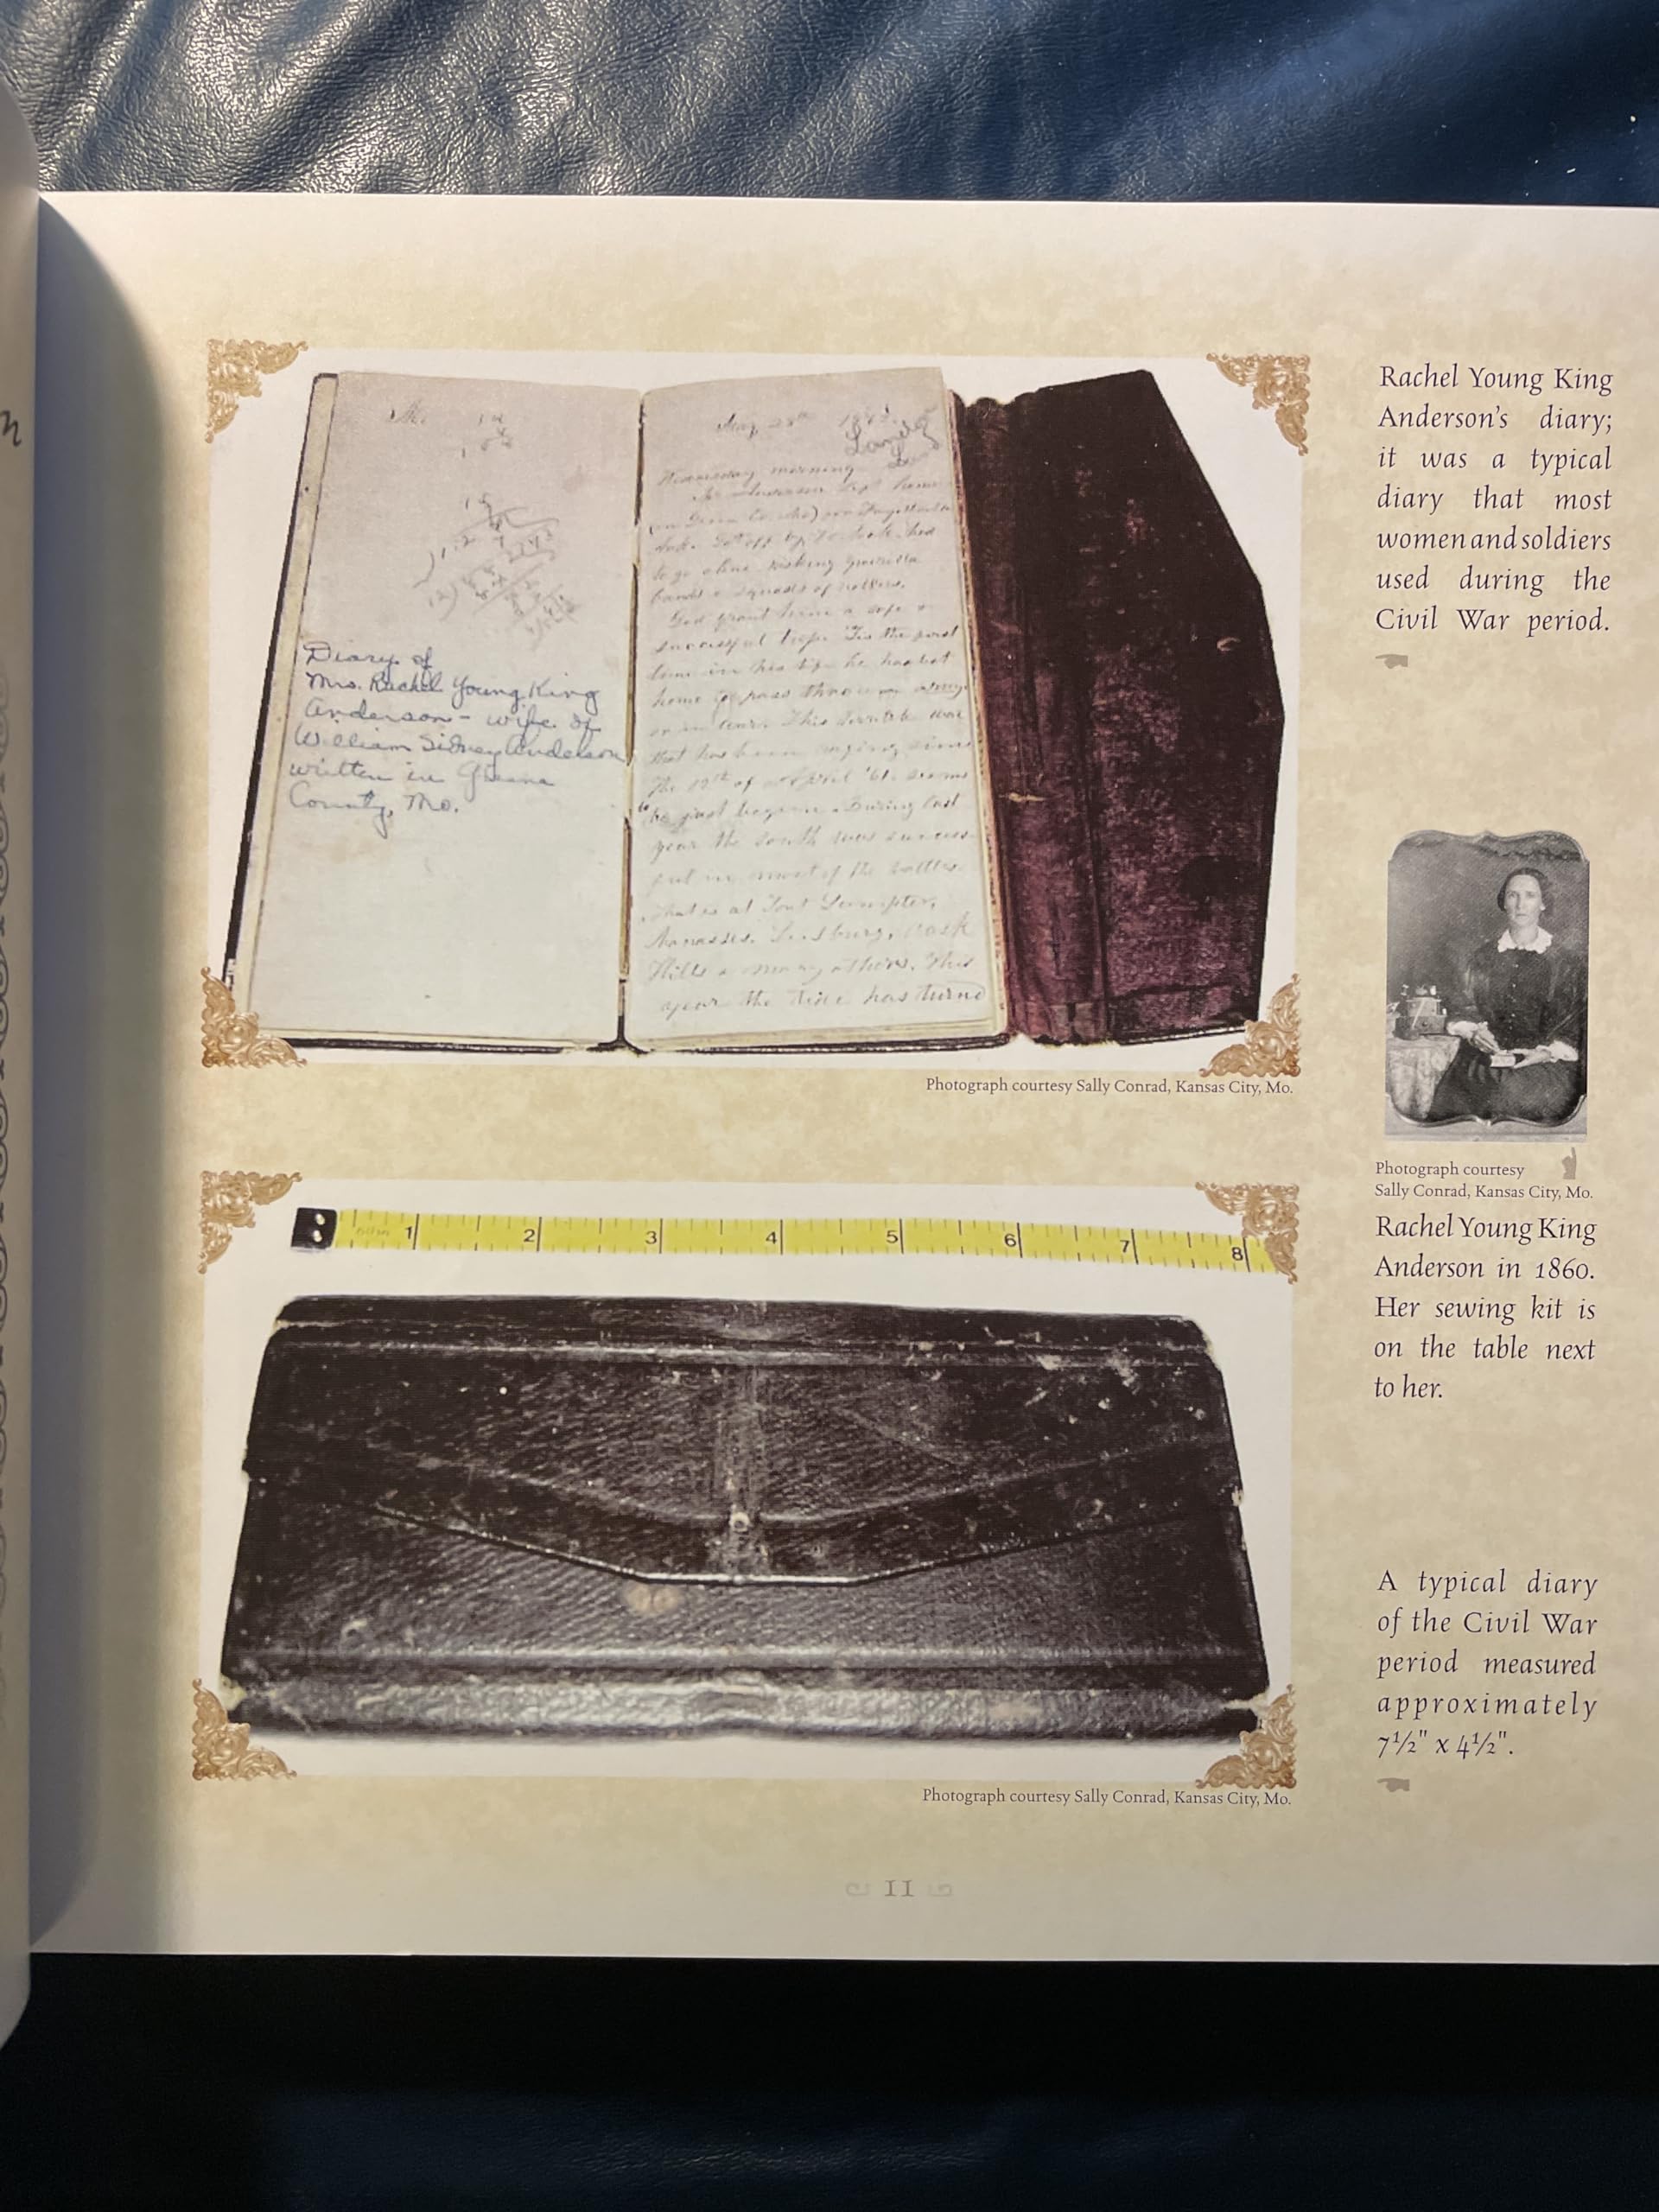 Diary of
Mrs. Rachel Young King
Anderson - wife of
William Sidney Anderson
written in Greene
County, Mo.
May 28th 186
morning
Mr Anderson left home
to go alone risking guerrilla
bands & squads of
God grant him a safe &
successful trip. Tis the first
time in his life he has left
home to pass through an army
or in fear. This terrible war
that has been raging since
The 12th of April '61. seems
to be just begun. During last
year the South was success-
ful in most of the battles.
that is at Fort Sumpter,
Manasses, Leesburg, Oak
Hills & many others. This
year the tide has turned
Photograph courtesy Sally Conrad, Kansas City, Mo.
Rachel Young King
Anderson's diary;
it was a typical
diary that most
women and soldiers
used during the
Civil War period.
Photograph courtesy
Sally Conrad, Kansas City, Mo.
Rachel Young King
Anderson in 1860.
Her sewing kit is
on the table next
to her.
1 2 3 4 5 6 7 8
A typical diary
of the Civil War
period measured
approximately
7½" x 4½".
Photograph courtesy Sally Conrad, Kansas City, Mo.
11